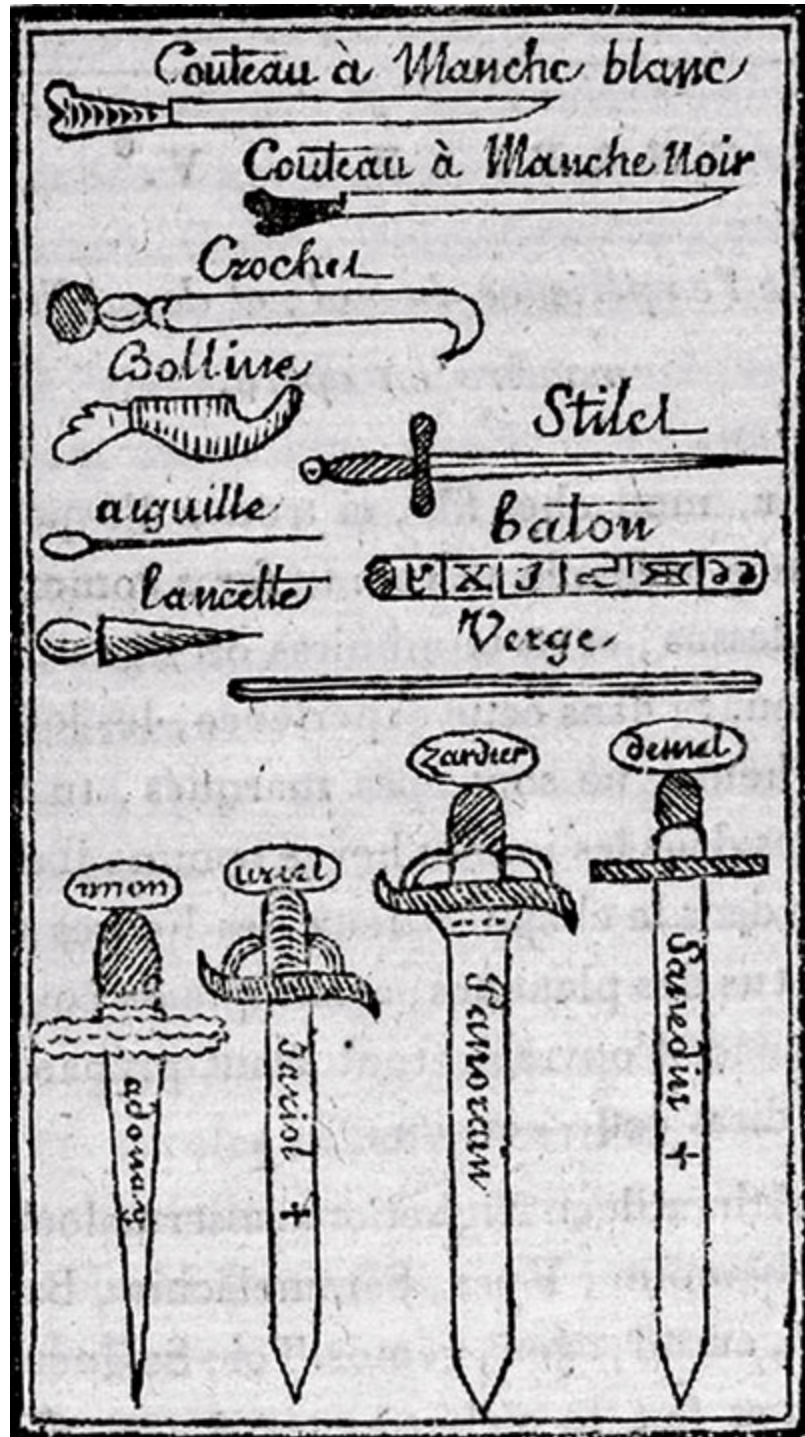 Couteau à Manche blanc
Couteau à Manche Noir
Crochet
Bolline
Stilet
aiguille
baton
lancette
Verge.
Zardier
demel
uriel
adonay
Jariol +
Panoraim
Lamedin +